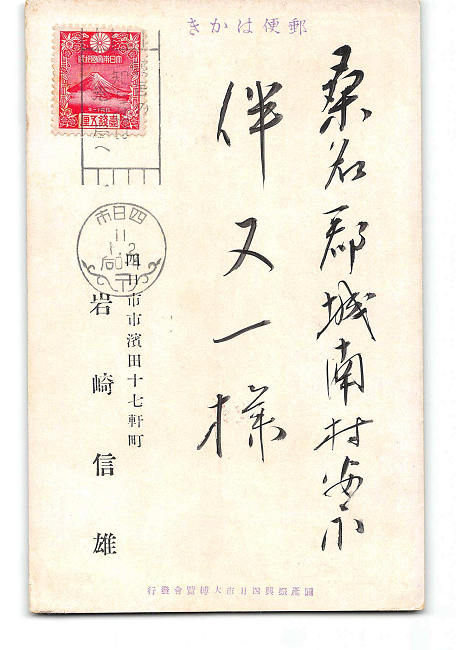 郵便はかき
大日本帝國郵便
壹錢五厘
四日市
11
桑名郡城南村安永
伴又一様
四日市市濱田十七軒町
岩崎信雄
國產振興四日市大博覽會發行